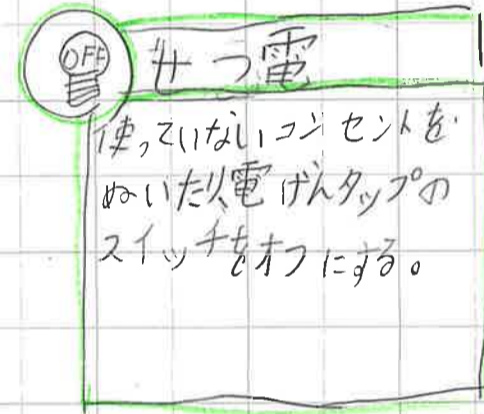 OFF
せつ電
使っていないコンセントを
ぬいたり、電げんタップの
スイッチをオフにする。